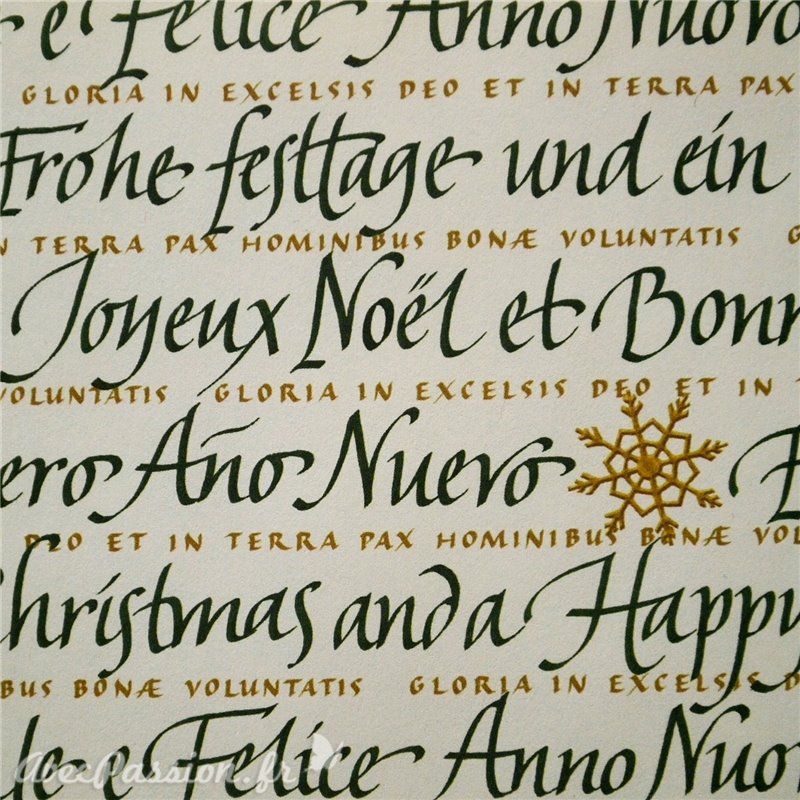 e Felice Anno Nuovo
GLORIA IN EXCELSIS DEO ET IN TERRA PAX
Frohe festtage und ein
N TERRA PAX HOMINIBUS BONÆ VOLUNTATIS G
Joyeux Noël et Bonn
VOLUNTATIS GLORIA IN EXCELSIS DEO ET IN T
ero Año Nuevo
DEO ET IN TERRA PAX HOMINIBUS BONÆ VOL
Christmas and a Happy
BUS BONÆ VOLUNTATIS GLORIA IN EXCELSIS D
le e Felice Anno Nuov
AvecPassion.fr